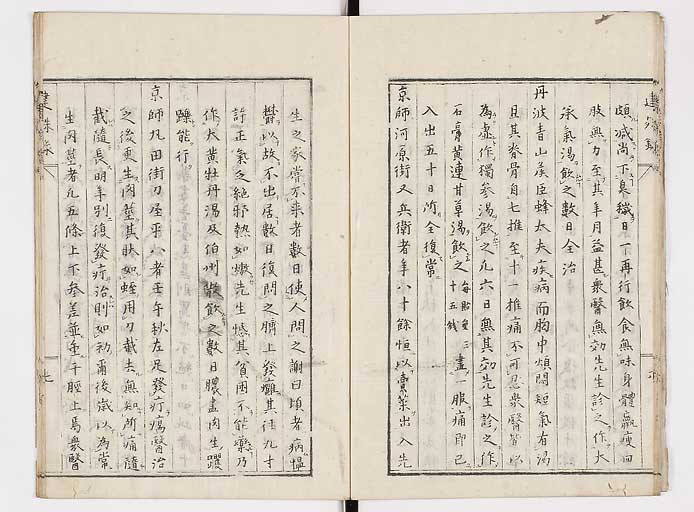 建殊録
頗減尚下臭穢日一再行飲食無味身體羸瘦四
肢無力至其年月益甚衆醫無効先生診之作大
承氣湯飲之數日全治
丹波青山侯臣蜂大夫疾病而胸中煩悶短氣有渴
且其脊骨自七推至十一推痛不可忍衆醫皆以
為虛作獨參湯飲之凡六日無其効先生診之作
石膏黄連甘草湯飲之每貼重三十五錢盡一服痛即已
入出五十日所全復常
京師河原街又兵衛者年八十餘恒以賣菜出入先
生之家嘗不來者數日使人問之謝曰頃者病慍
鬱以故不出居數日復問之臍上發癰其徑九寸
許正氣乏絶邪熱如燬先生愍其貧困不能藥乃
作大黄牡丹湯及伯州散飲之數日膿盡肉生躍
躒能行
京師丸田街刀屋平八者壬午秋左足發疔瘍醫治
之後更生肉莖其狀如蛭用刀截去無知所痛隨
截隨長明年別復發疔治則如初爾後歳以為常
生肉莖者凡五條上下參差並垂于脛上焉衆醫
建殊録